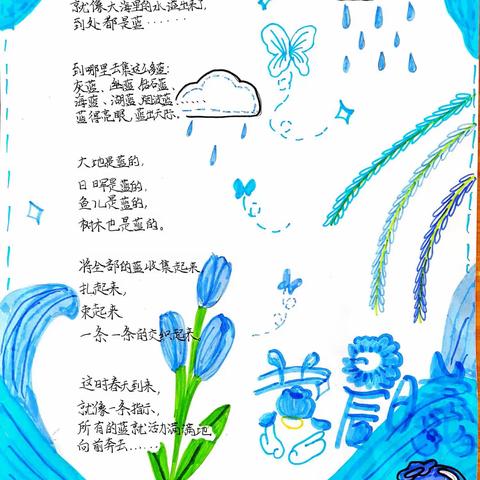 就像大海里的水溢出来了
到处都是蓝······
到哪里去集这么多蓝:
灰蓝、坐蓝、钻石蓝、
海蓝、湖蓝、烟波蓝······
蓝得亮眼,蓝出天际。
大地是蓝的,
日晖是蓝的,
鱼儿是蓝的,
树木也是蓝的。
将全部的蓝收集起来,
扎起来,
束起来,
一条一条的交织起来,
这时春天到来,
就像一条指示,
所有的蓝就活力满满地,
向前奔去······